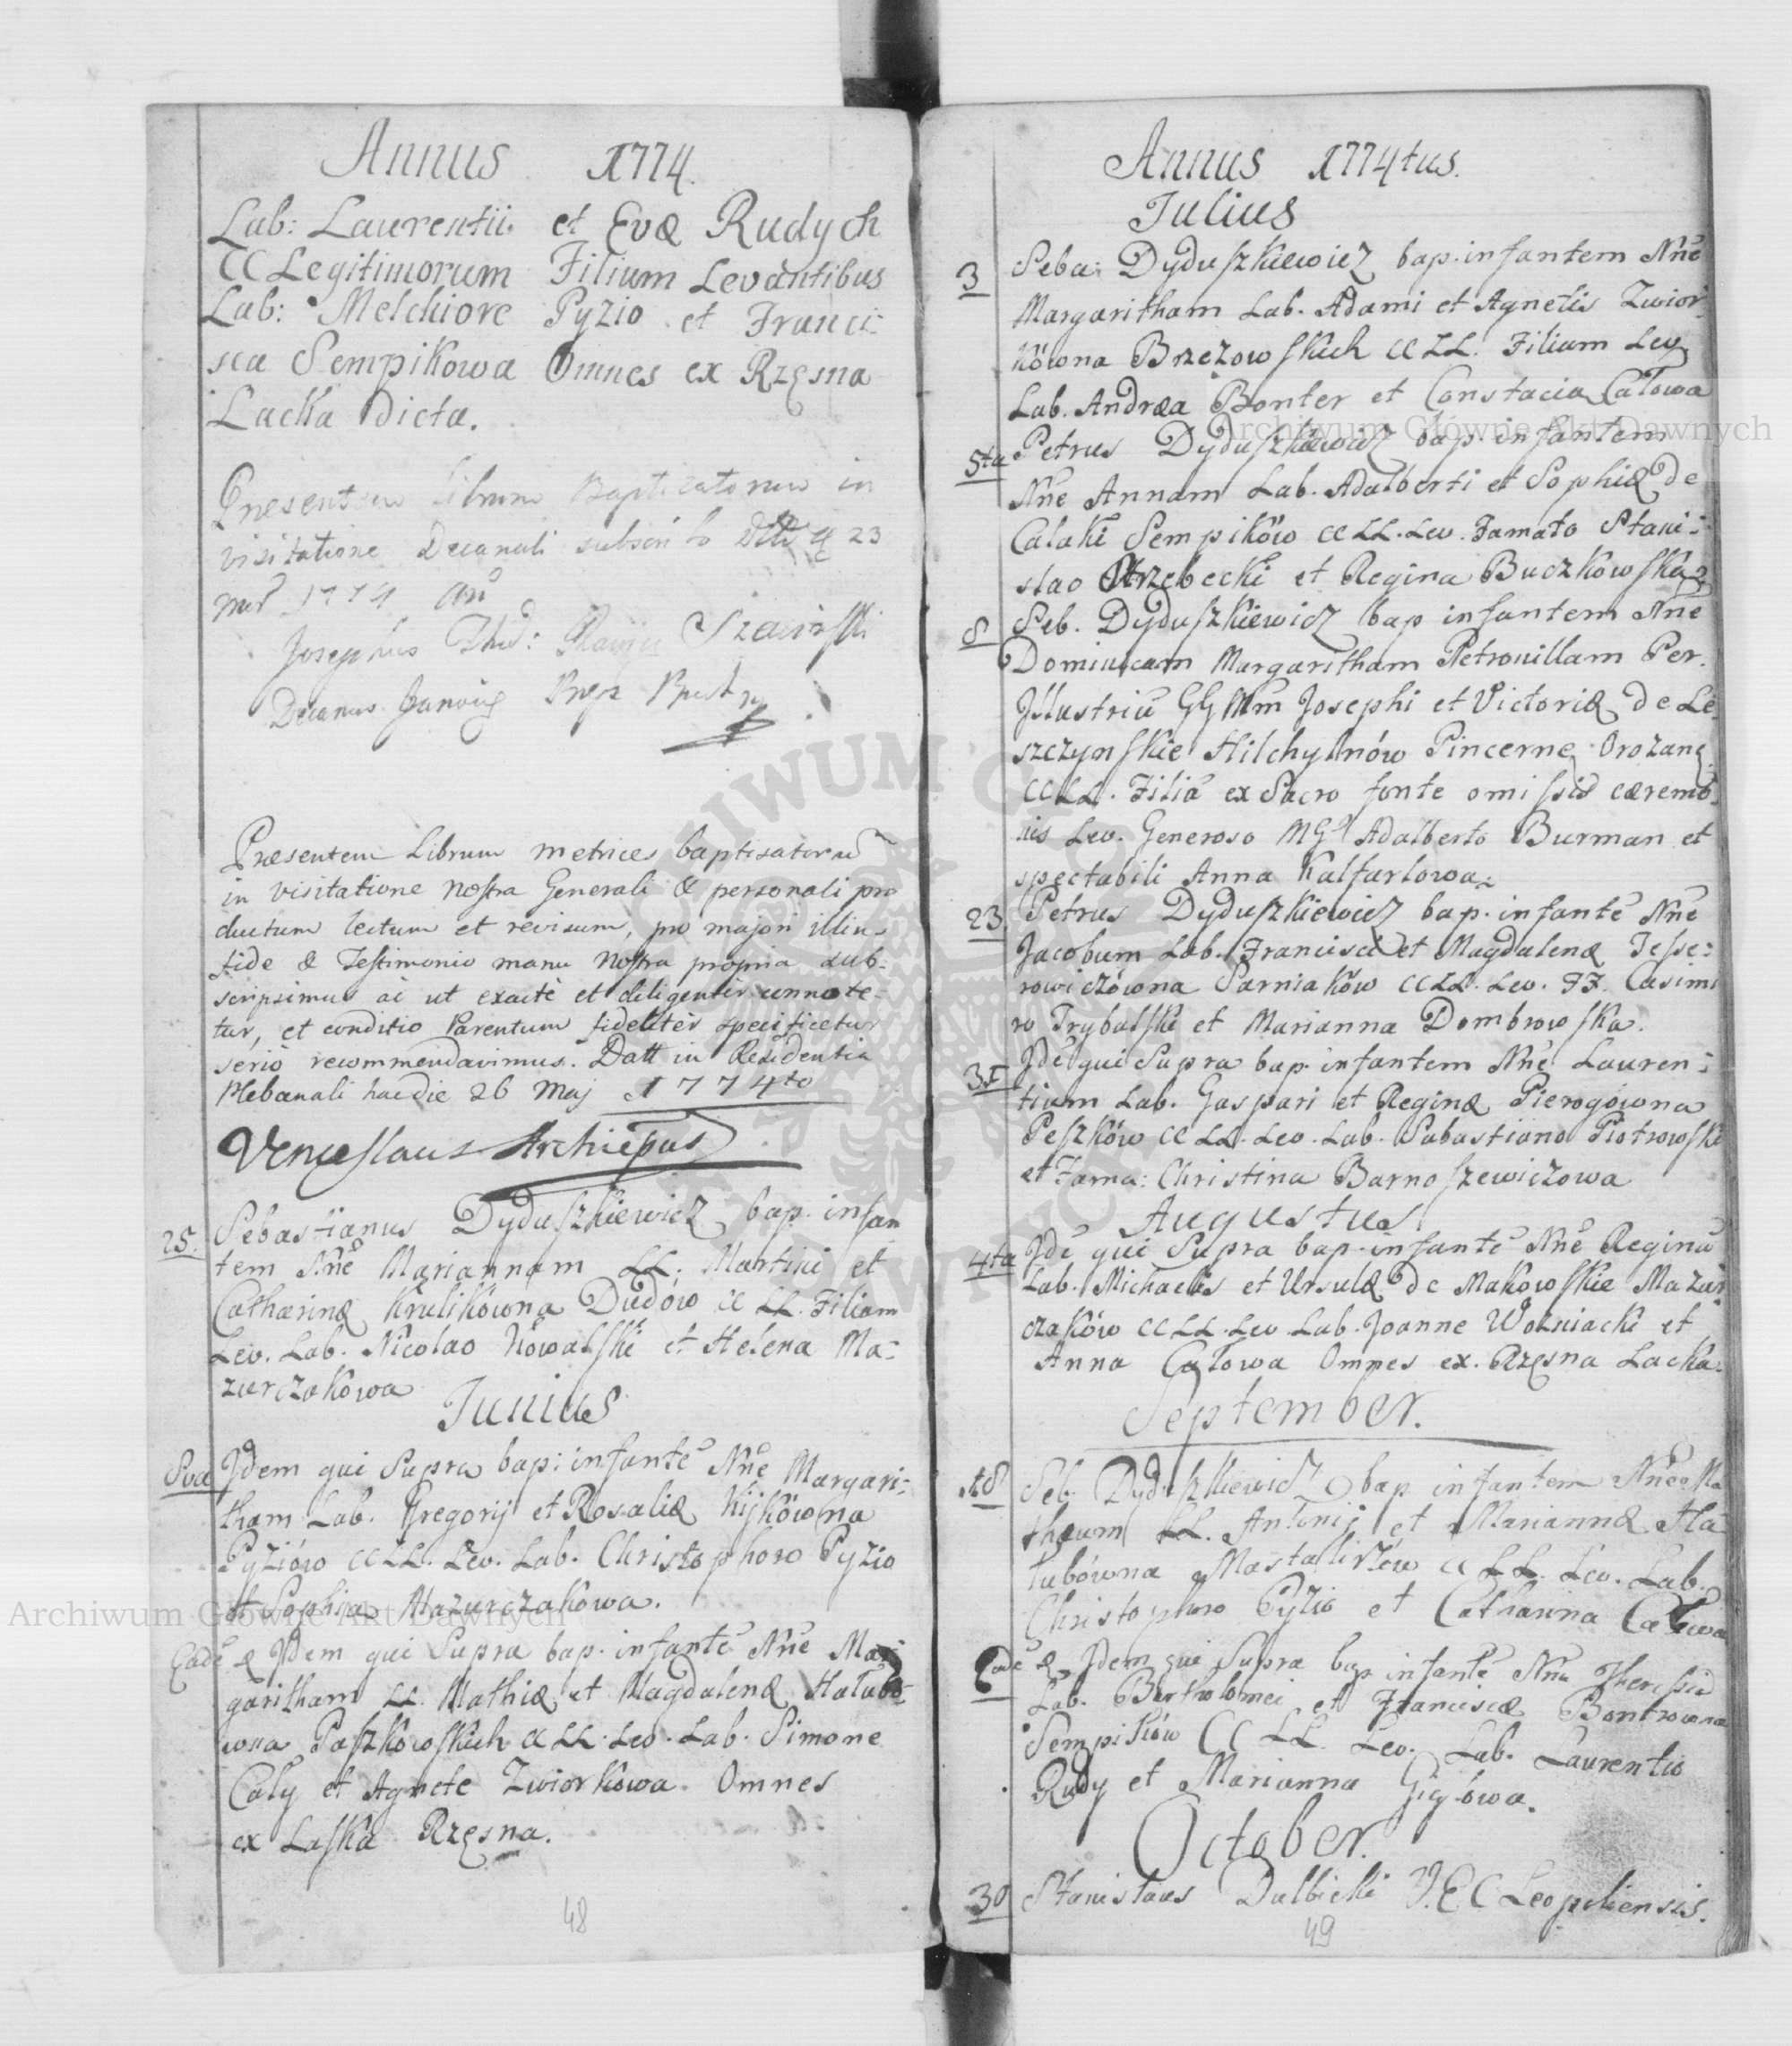 Annus 1774.
Lab: Laurentii et Evæ Rudych
CC Legitimorum Filium Levantibus
Lab: Melchiore Pyzio et Franci:
sca Sempikowa Omnes ex Rzęsna
Lacka Dicta.
Presentem librum Baptizatorum in
visitatione Decanali 23
1774
Josephus
Decanus
Præsentem Librum metrices baptisatorũ
in visitatione nostra Generali & personali pro
ductum lectum et revisum, pro majori illius
fide & Testimonio manu Nostra propria sub:
scripsimus ac ut exactè et diligentèr connote:
tur, et conditio Parentum fidelitèr specificetur
seriò recommendavimus. Datt in Residentia
Plebanali hac die 26 Maj 1774to
Venceslaus Archiepus
25. Sebastianus Dyduszkiewicz bap. infan
tem Nñe Mariannam LL. Martini et
Catharinæ Krulikówna Dudów CC LL. Filiam
Lev. Lab. Nicolao Kowalski et Helena Ma:
zurczakowa
Junius
5va Idem qui Supra bap: infantẽ Nñe Margari:
tham Lab. Gregorij et Rosaliæ Kijkówna
Pyziów CC LL. Lev. Lab. Christophoro Pyzio
et Sophia Mazurczakowa.
Eadẽ æ Idem qui Supra bap. infantẽ Nñe Mar
garitham LL. Mathiæ et Magdalenæ Hałubo:
wna Paszkowskich CC LL. Lev. Lab. Simone
Cały et Agnete Zwiorkowa Omnes
ex Laska Rzęsna.
48
Annus 1774tus.
Julius
3 Seba: Dyduszkiewicz bap. infantem Nñe
Margaritham Lab. Adami et Agnetis Zwior
kówna Brzezowskich CC LL. Filiam Lev
Lab. Andrea Bonter et Constacia Całowa
5ta Petrus Dyduszkiewicz bap. infantem
Nñe Annam Lab. Adalberti et Sophiæ de
Calaki Sempików CC LL. Lev. Famato Stani:
slao Strzebecki et Regina Buczkowska
8 Seb. Dyduszkiewicz bap infantem Nñe
Dominicam Margaritham Petronillam Per.
Illustriũ GG Mm Josephi et Victoriæ de Le
szczynskie Hilchynów Pincerne Orozanę
CC LL. Filiã ex Sacro fonte omissis cæremo
nis Lev. Generoso MG Adalberto Burman et
spectabili Anna Kalfarlowa
23 Petrus Dyduszkiewicz bap. infantẽ Nñe
Jacobum Lab. Francisci et Magdalenæ Jesse:
rowiczówna Sarniaków CC LL. Lev. FF. Casimi
ro Trybalski et Marianna Dombrowska.
31 Idẽ qui Supra bap. infantem Nñe Lauren:
tium Lab. Gaspari et Reginæ Pierogówna
Peszków CC LL. Lev. Lab. Sabastiano Piotrowski
et Fama: Christina Barnoszewiczowa
Augustus
4ta Idẽ qui Supra bap. infantẽ Nñe Reginã
Lab. Michaelis et Ursulæ de Makowskie Mazur
czaków CC LL. Lev Lab. Joanne Wozniacki et
Anna Całowa Omnes ex. Rzęsna Lacka.
September.
18 Seb. Dyduszkiewicz bap infantem Nñe Ma
theum LL. Antonij et Mariannæ Ha
łubówna Mastalirzów CC LL. Lev. Lab.
Christophoro Pyzio et Catharina Całowa
Eadẽ æ Idem qui Supra bap infantẽ Nñe Theresiã
Lab. Bartholomei et Franciscæ Bontrowna
Sempików CC LL. Lev. Lab. Laurentio
Rudy et Marianna Gigówa.
October.
30 Stanislaus Dulbicki V. E C Leopoliensis.
49
Archiwum Główne Akt Dawnych
Archiwum Główne Akt Dawnych